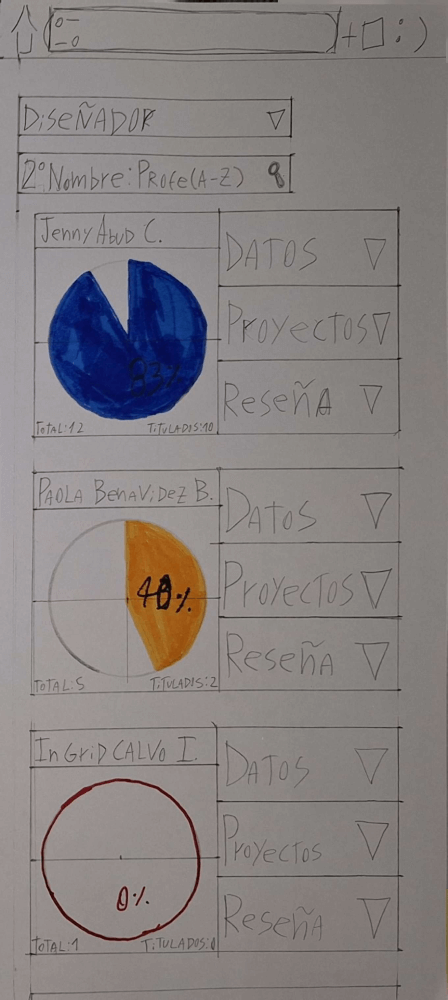 DiSEÑADOR
2°Nombre: Profe(A-Z)
Jenny Abud C.
83%
TOTAL:12 TiTULADOS:10
DATOS
Proyectos
Reseña
PAOLA BenaViDeZ B.
40%
TOTAL:5 TiTULADOS:2
DATOS
Proyectos
Reseña
InGriD CALVO I.
0%
TOTAL:1 TiTULADOS:0
DATOS
Proyectos
Reseña